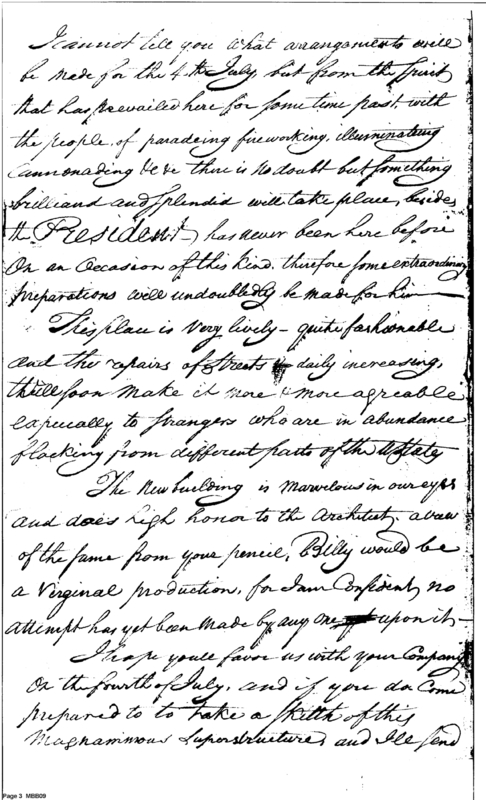 I cannot tell you what arrangements will
be made for the 4th July, but from the spirit
that has prevailed here for some time past, with
the people, of paradeing fireworking, illuminating
Cannonading &c &c there is no doubt but something
brilliand and splendid will take place, besides
the President has never been here before
On an Occasion of this kind, therefore some extraordinary
preparations will undoubledly be made for him—
This place is very lively – quite fashionable
and the repairs of Streets & daily increasing,
will soon make it more & more agreable
especually to strangers who are in abundance
flocking from different parts of the State
The New building is marvelous in our eyes
and does high honor to the Architect, a view
of the same from your pencil, Billy would be
a Virginal production, for I am Confident, no
attempt has yet been made by any one upon it—
I hope youle favor us with your Company
On the fourth of July, and if you do Come
prepared to to take a skitth of this
Magnammous Superstructure, and Ile send
Page 3 MBB09